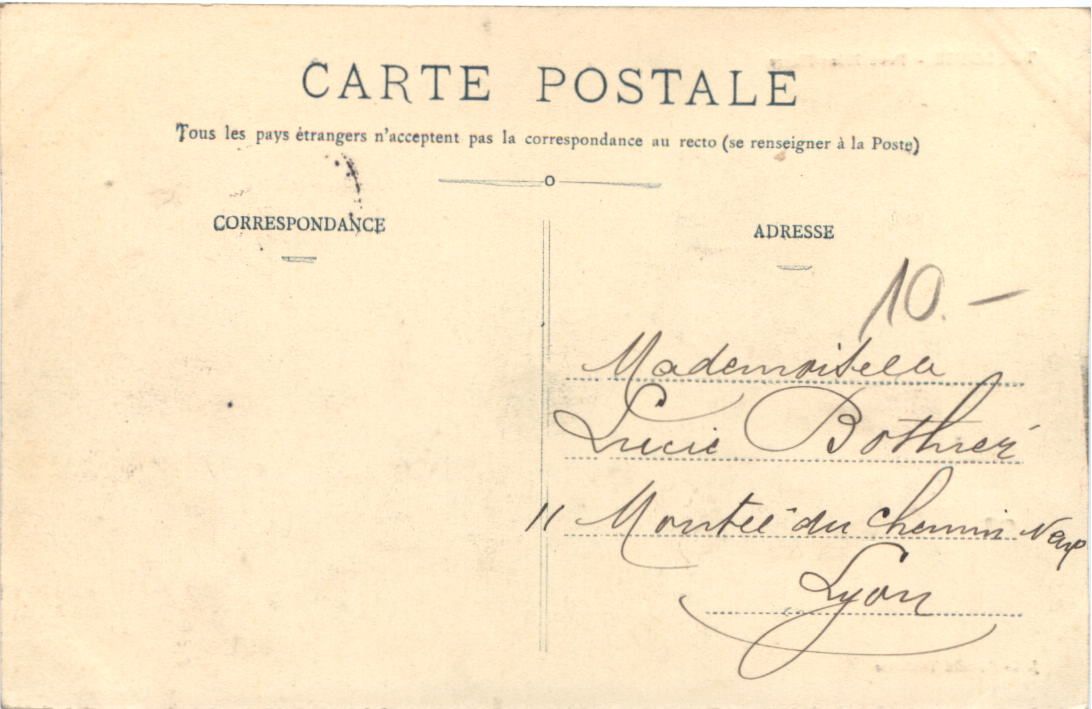 CARTE POSTALE
Tous les pays étrangers n'acceptent pas la correspondance au recto (se renseigner à la Poste)
CORRESPONDANCE
ADRESSE
10.-
Mademoiselle
Lucie Bothier
11 Montée du Chemin Neuf
Lyon